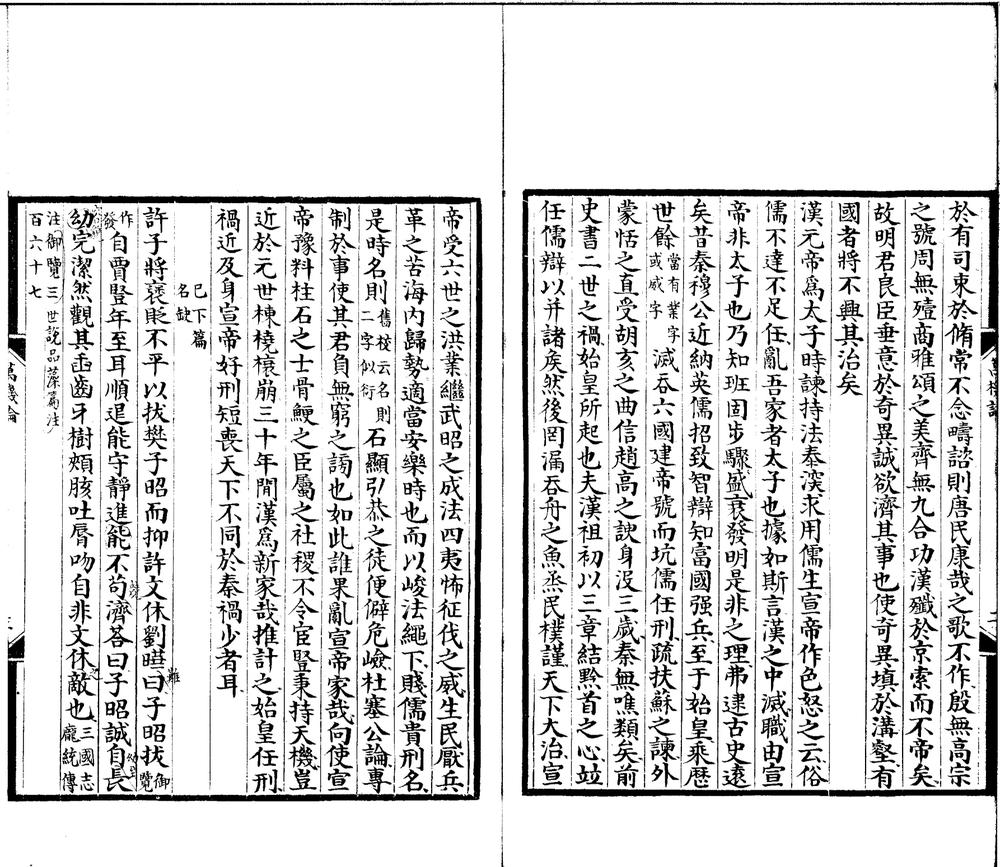 於有司束於脩常不念疇諮則唐民康哉之歌不作殷無高宗
之號周無殪商雅頌之美齊無九合功漢殲於京索而不帝矣
故明君良臣垂意於奇異誠欲濟其事也使奇異填於溝壑有
國者將不興其治矣
漢元帝為太子時諫持法泰深求用儒生宣帝作色怒之云俗
儒不達不足任亂吾家者太子也據如斯言漢之中滅職由宣
帝非太子也乃知班固步驟盛衰發明是非之理弗逮古史遠
矣昔秦穆公近納英儒招致智辯知富國强兵至于始皇乘歷
世餘當有業字或威字滅吞六國建帝號而坑儒任刑疏扶蘇之諫外
蒙恬之直受胡亥之曲信趙高之諛身没三歲秦無噍類矣前
史書二世之禍始皇所起也夫漢祖初以三章結黔首之心竝
任儒辯以并諸矦然後罔漏吞舟之魚烝民樸謹天下大治宣
帝受六世之洪業繼武昭之成法四夷怖征伐之威生民厭兵
革之苦海内歸勢適當安樂時也而以峻法繩下賤儒貴刑名
是時名則舊校云名則二字似衍石顯引恭之徒便僻危嶮杜塞公論專
制於事使其君負無窮之謗也如此誰果亂宣帝家哉向使宣
帝豫料柱石之士骨鯁之臣屬之社稷不令宦豎秉持天機豈
近於元世棟橈榱崩三十年閒漢為新家哉推計之始皇任刑
禍近及身宣帝好刑短喪天下不同於秦禍少者耳
已下篇名缺
許子將襃貶不平以拔樊子昭而抑許文休劉曄難曰子昭拔御覽
作發自賈豎年至耳順退能守靜進能不苟濟荅曰子昭誠自長幼至
幼完潔然觀其臿齒牙樹頰胲吐脣吻自非文休敵也三國志龐統傳
注御覽三
百六十七
世說品藻篇注
萬機論